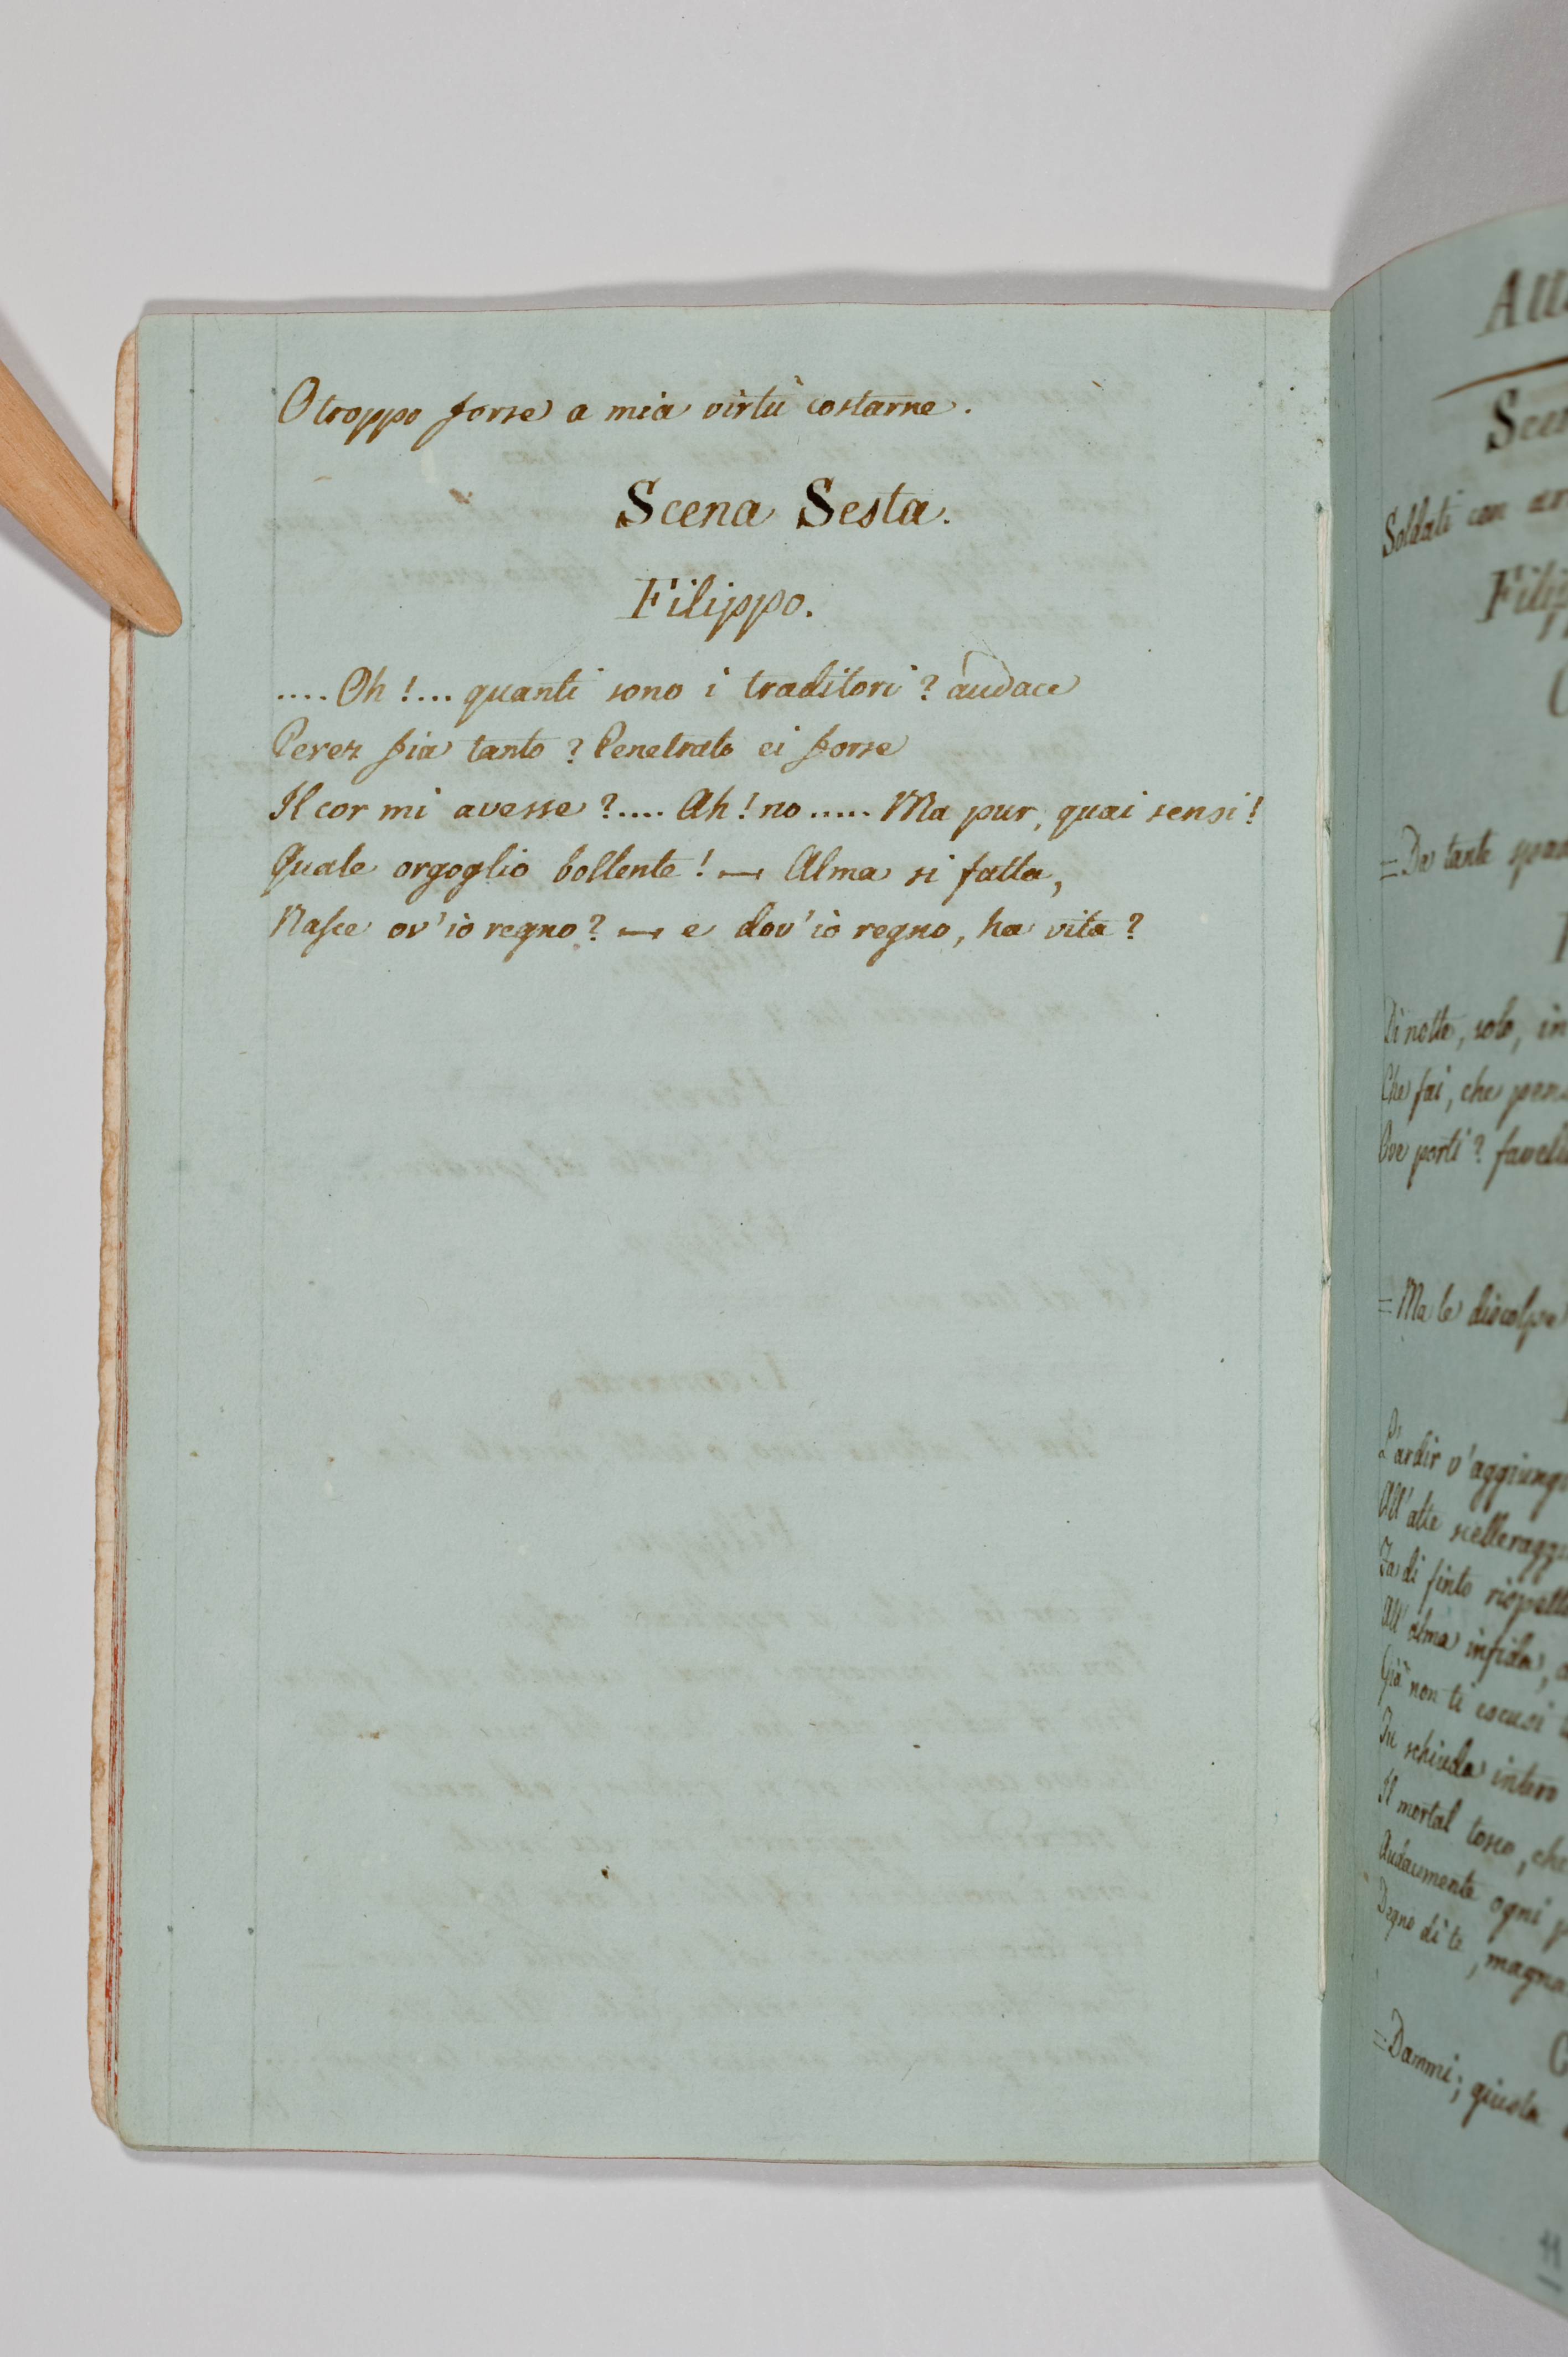 O troppo forse a mia virtù costarne.
Scena Sesta.
Filippo.
.... Oh!... quanti sono i traditori? audace
Perez fia tanto? Penetrato ei forse
Il cor mi avesse?.... Ah! no ..... Ma pur, quai sensi!
Quale orgoglio bollente! — Alma si fatta,
Nasce ov'io regno? — e dov'io regno, ha vita?
Soldati con
Da tante
Di notte, solo, in
Che fai, che
Ove porti?
= Ma le discolpe
L'ardir v'aggiungi
All'alte
Fa di finto
All'alma infida,
Già non ti escusi
Tu schiuda intero
Il mortal tosco, che
Audacemente ogni
Degno di te, magna
= Dammi; giusta